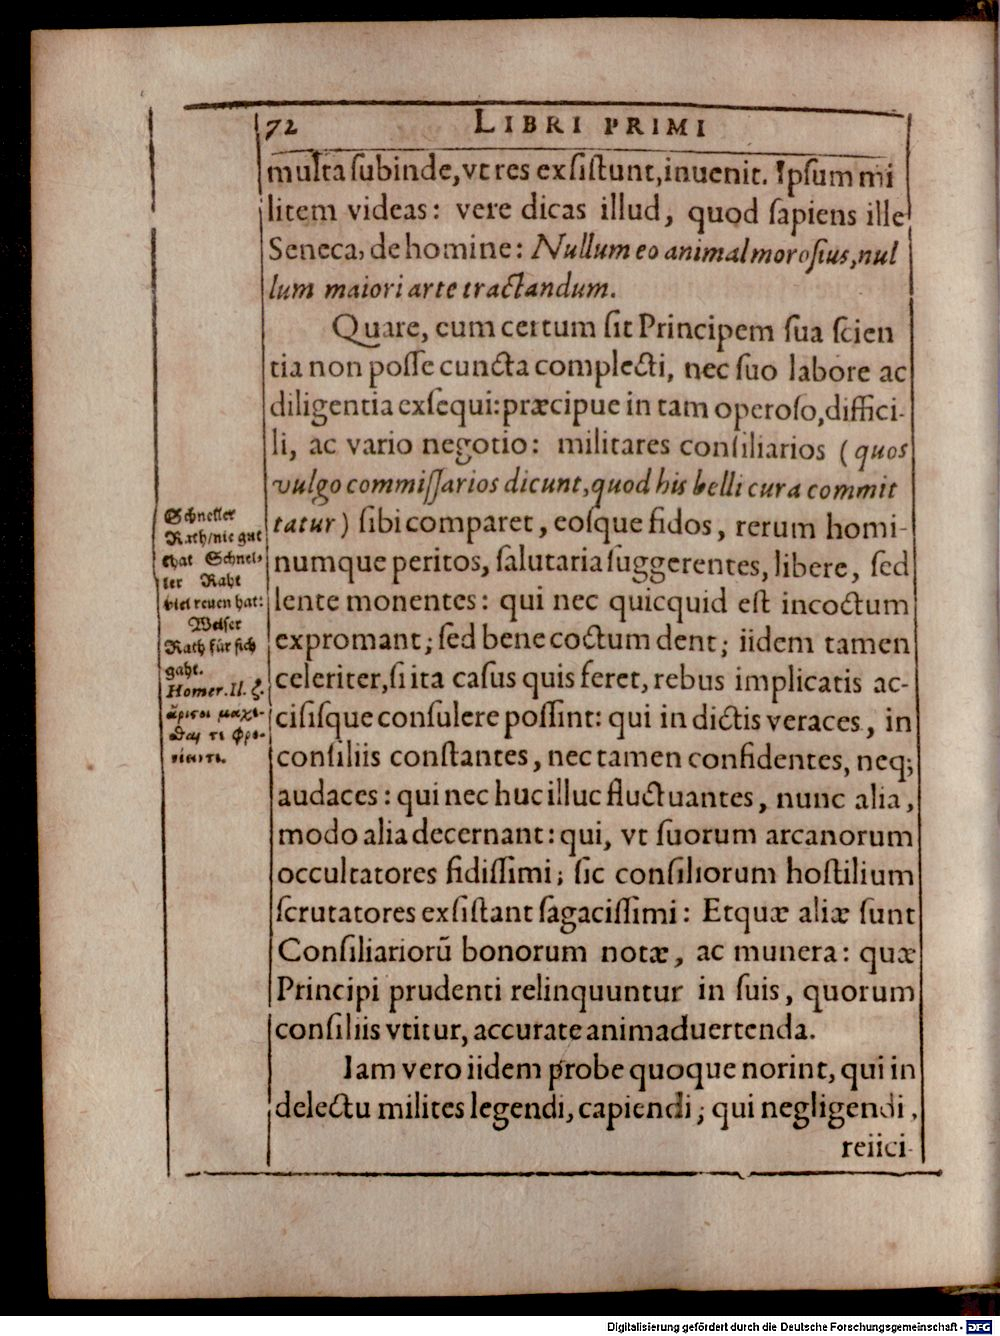 72 LIBRI PRIMI
multa ſubinde, vt res exſiſtunt, inuenit. Ipſum mi
litem videas: vere dicas illud, quod ſapiens ille
Seneca, de homine: Nullum eo animal moroſius, nul
lum maiori arte tractandum.
Quare, cum certum ſit Principem ſua ſcien
tia non poſſe cuncta complecti, nec ſuo labore ac
diligentia exſequi: præcipue in tam operoſo, diffici-
li, ac vario negotio: militares conſiliarios (quos
vulgo commiſſarios dicunt, quod his belli cura commit
tatur) ſibi comparet, eoſque fidos, rerum homi-
numque peritos, ſalutaria ſuggerentes, libere, ſed
lente monentes: qui nec quicquid eſt incoctum
expromant; ſed bene coctum dent; iidem tamen
celeriter, ſi ita caſus quis feret, rebus implicatis ac-
ciſiſque conſulere poſſint: qui in dictis veraces, in
conſiliis conſtantes, nec tamen confidentes, neq;
audaces: qui nec huc illuc fluctuantes, nunc alia,
modo alia decernant: qui, vt ſuorum arcanorum
occultatores fidiſſimi; ſic conſiliorum hoſtilium
ſcrutatores exſiſtant ſagaciſſimi: Et quæ aliæ ſunt
Conſiliariorū bonorum notæ, ac munera: quæ
Principi prudenti relinquuntur in ſuis, quorum
conſiliis vtitur, accurate animaduertenda.
Iam vero iidem probe quoque norint, qui in
delectu milites legendi, capiendi; qui negligendi,
reiici-
Schneller
Rath/nie gut
that Schnel-
ler Raht
viel reuen hat:
Weiſer
Rath für ſich
gaht.
Homer. Il. ζ.
ἄριςοι μάχε-
ϑαι τε φρο-
νέειν τε.
Digitalisierung gefördert durch die Deutsche Forschungsgemeinschaft - DFG